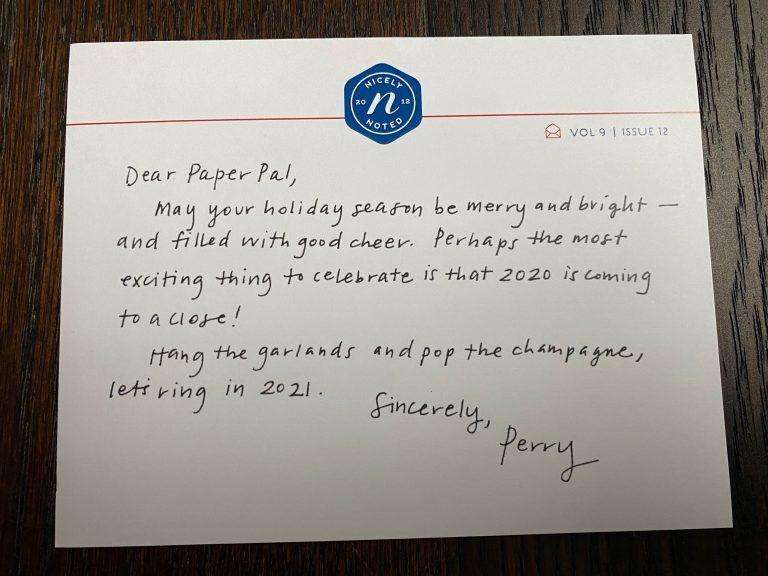 NICELY
20 n 18
NOTED
VOL 9 | ISSUE 12
Dear Paper Pal,
May your holiday season be merry and bright —
and filled with good cheer. Perhaps the most
exciting thing to celebrate is that 2020 is coming
to a close!
Hang the garlands and pop the champagne,
let's ring in 2021.
Sincerely,
Perry